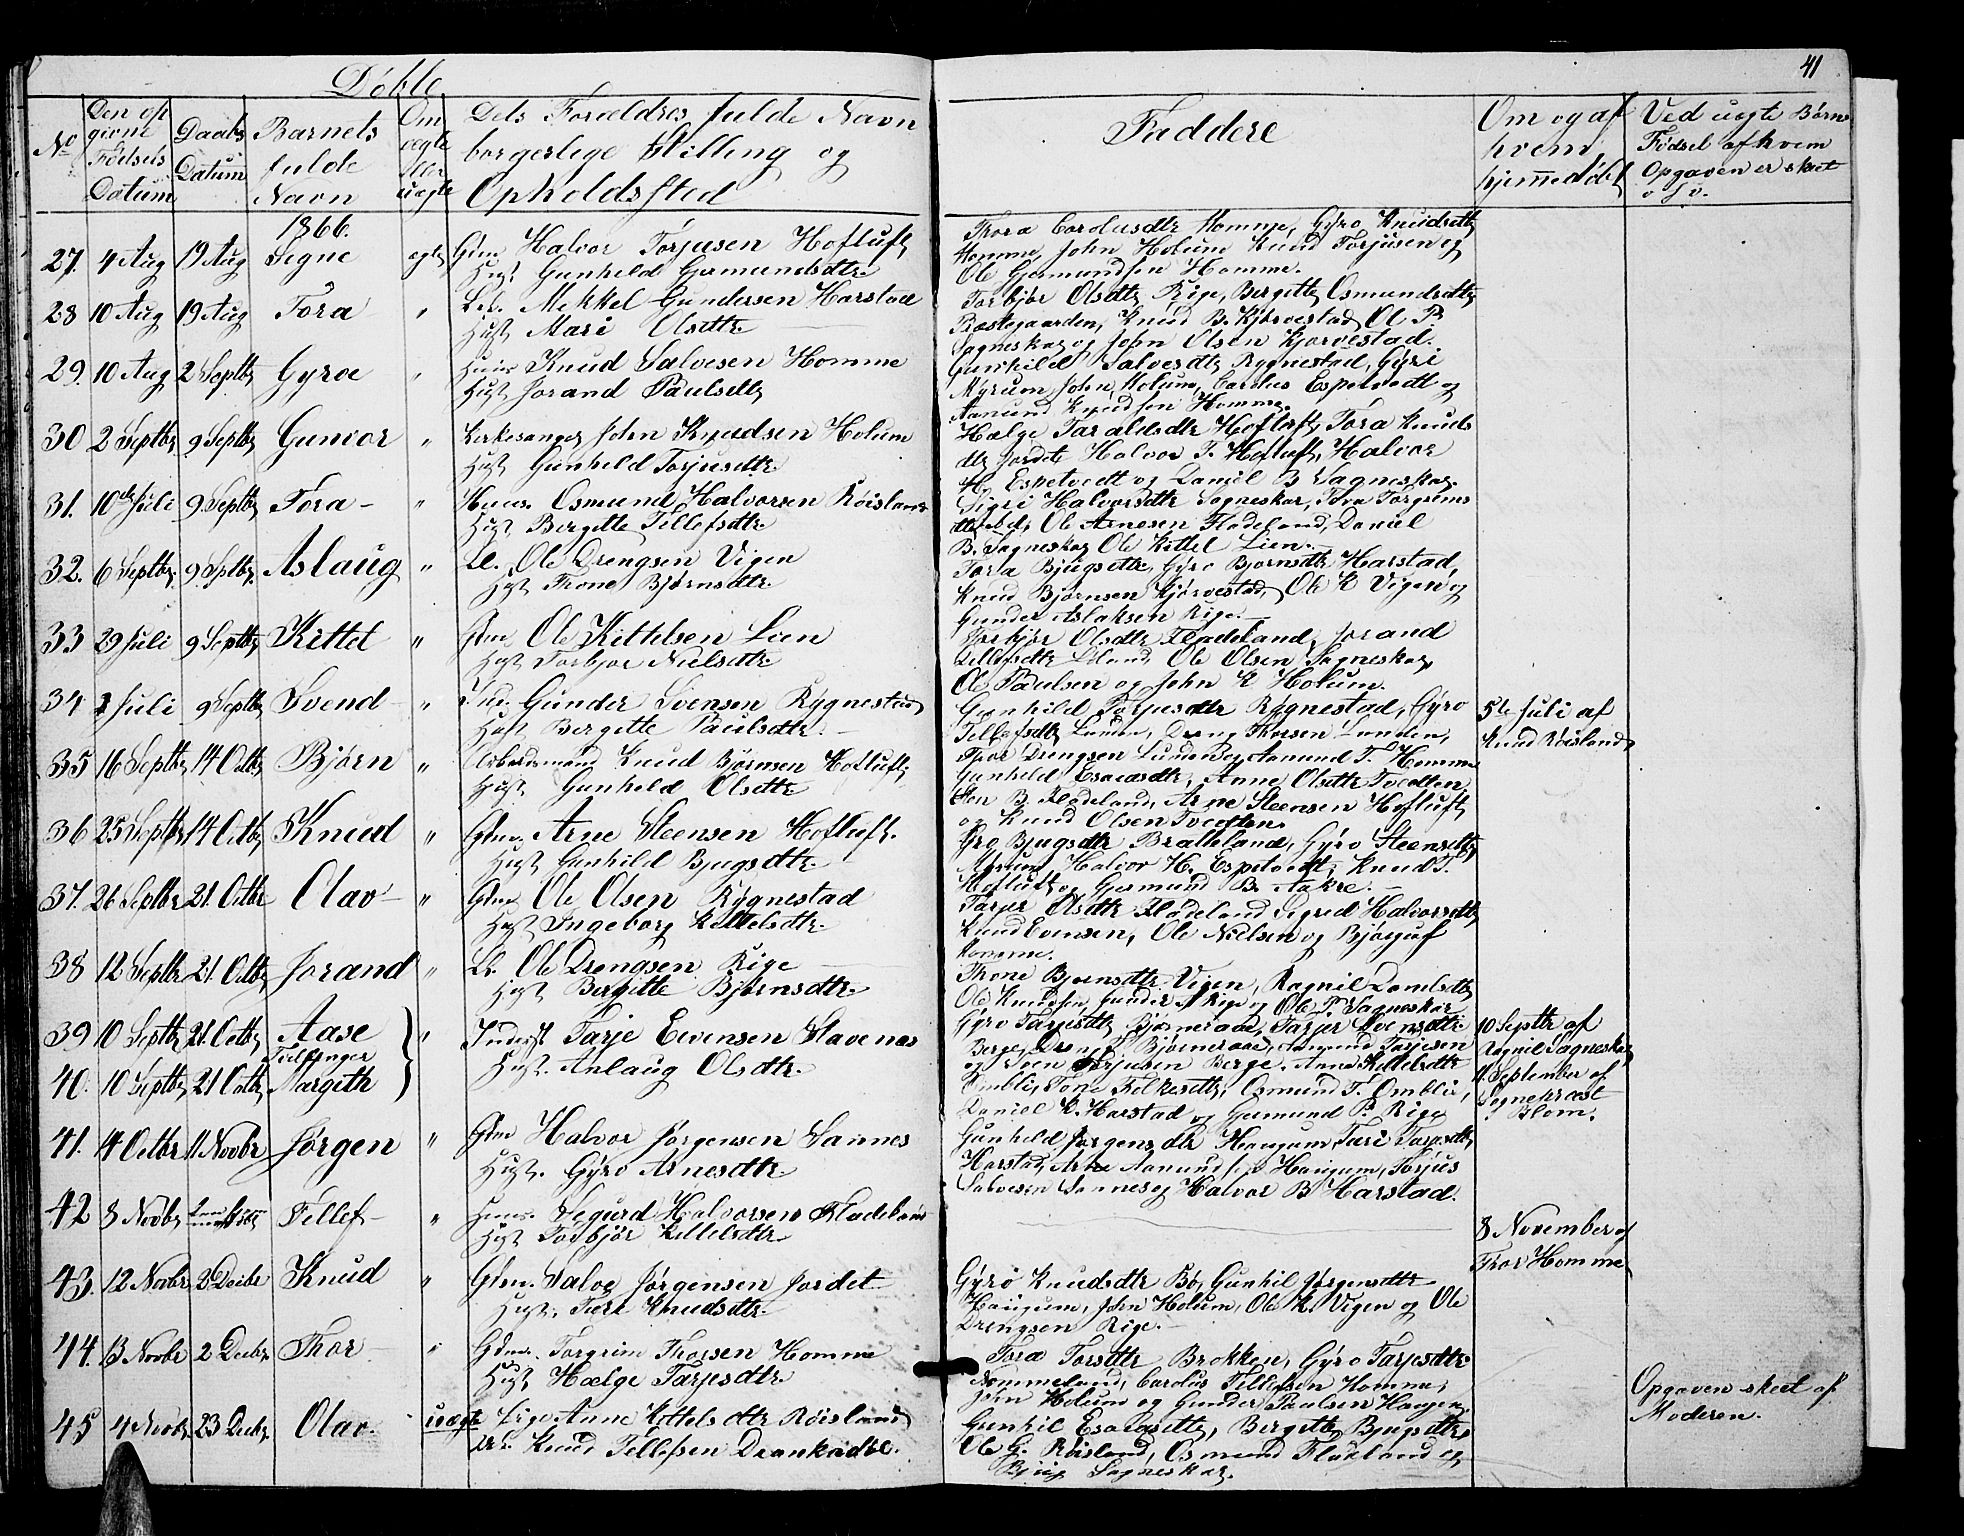 41
Døbte
No
Den opgivne Fødsels Datum
Daabs Datum
Barnets fulde Navn
Om ægte eller uægte
Dets Forældres fulde Navn
borgerlige Stilling og
Opholdssted
Faddere
Om og af hvem hjemmedøbt
Ved uægte Børns Fødsel af hvem Opgaven er skeet o.s.v.
1866.
27. 4 Aug 19 Aug Signe ægte Gdm. Halvor Torjusen Hofluft
Hust Gunhild Germundsdtr.
Thora Carolusdtr Homme, Gyro Knudsdtr
Homme, John Holum Knud Torjusen og
Ole Germundsen Homme.
28 10 Aug 19 Aug Tora " Lel. Mikkel Gundersen Harstad
Hust Mari Olsdtr
Torbjør Olsdtr Rige, Bergitte Osmundsdtr
Præstegaarden, Knud B. Kjørvestad, Ole P.
Sagneskar og John Olsen Kjørvestad.
29. 10 Aug 2 Septbr Gyroe " Huus Knud Salvesen Homme
Hust Jorand Paulsdtr
Gunhild Salvesdtr Rygnestad, Gyri
Myrum, John Holum, Carolus Espetvedt og
Aamund Knudsen Homme.
30 2 Septbr 9 Septbr Gunvor " Kirkesanger John Knudsen Holum
Hust Gunhild Torjusdtr.
Hælge Taraldsdtr Hofluft, Tora Knuds
dtr Jordet Halvor T. Hofluft, Halvor
H. Espetvedt og Daniel B Sagneskar.
31. 10de Juli 9 Septbr Tora " Huus. Osmund Halvorsen Røisland
Hust Bergitte Tellefsdtr
Sigri Halvorsdtr Sagneskar, Tora Torgrims
Ole Arnesen Fladeland, Daniel
B. Sagneskar Ole Kittel Lien.
32. 6 Septbr. 9 Sptbr. Aslaug " Ll. Ole Drengsen Vigen
Hst Trone Bjørnsdtr.
Tora Bjugsdtr, Gyro Bjørnsdtr Harstad,
Knud Bjørnsen Kjørvestad, Ole K Vigen og
Gunder Aslaksen Rige.
33 29 Juli 9 Septbr Kittel " Gdm Ole Kithelsen Lien
Hust Torbjør Nielsdtr.
Torbjør Olsdtr Fladeland, Jorand
Tellefsdtr Ole Olsen Sagneskar,
Ole Paulsen og John K Holum.
34 2 Juli 9 Septbr Svend " Ind. Gunder Svensen Rygnestad
Hust Bergitte Paulsdtr.
Gunhild Torjusdtr Rygnestad, Gyro
Tellefsdtr Lunden, Dreng Thorsen Lunden,
Thor Drengsen Lunden og Aamund T. Homme
5te Juli af
Knud Røisland
35 16 Septbr 14 Octbr Bjørn " Arbeidsmand Knud Bjørnsen Hofluft
Hust. Gunhild Olsdtr
Gunhild Esaiasdtr, Anne Olsdtr Tvedten,
Sten B. Fladeland, Arne Steensen Hofluft
og Knud Olsen Tvedten.
36 25 Septbr 14 Octbr Knud " Gdm. Arne Steensen Hofluft.
Hust Gunhild Bjugsdtr.
Gro Bjugsdtr Bratteland, Gyro Steensdtr
Myrum Halvor H. Espetvedt, Knud T.
Hofluft og Germund B. Aakre.
37. 26 Septbr 21. Octbr Olav " Gdm Ole Olsen Rygnestad
Hust Ingeborg Kittelsdtr.
Tarjer Olsdtr Fladeland Sigrid Halvorsdtr
Knud Evensen, Ole Nielsen og Bjørguf
Homme.
38 12 Septbr 21 Octbr Jorand " Ll. Ole Drengsen Rige
Hust Bergitte Bjørnsdtr.
Throne Bjørnsdtr Vigen, Ragnil
Ole Knudsen, Gunder A Rige og Ole P. Sagneskar.
39 10 Septbr 21 Octbr Aase " Inderst Tarje Evensen Stavenæs
Tvillinger
40. 10 Septbr 21 Octbr Margith
Hust. Anlaug Olsdtr.
Gyro Tarjesdtr Bjørneraae, Tarjer Svensdtr
Berge, Dreng T Bjørneraae, Aamund Tarjesen
og Sven Torjusen Berge. Anne Kittelsdtr
Omblie, Tone Folkesdtr, Osmund T. Omblie,
Daniel K. Harstad og Germund P. Rige
10 Septbr af
Ragnil Sagneskar
11 September af
Sognepræst
Blom.
41. 4 Octbr 11 Novbr Jørgen " Gdm Halvor Jørgensen Sannes
Hust. Gyro Arnesdtr
Gunhild Jørgensdtr Haugum Tari Tarjesdtr
Harstad, Arne Aamundsen Haugum, Torjus
Salvesen Sannes og Halvor B Harstad.
42 8 Novbr Tellef " Huus. Segurd Halvorsen Fladeland
Hust Torbjør Kittelsdtr
8 November af
Thor Homme
43. 12 Novbr 2 Decbr Knud " Gdm. Salve Jørgensen Jordet
Hust. Turi Knudsdtr.
Gyro Knudsdtr Bø, Gunhil Jørgensdtr
Haugum, John Holum, Ole K. Vigen og Ole
Drengsen Rige.
44. 13 Novbr 2 Decbr. Thor " Gdm. Torgrim Thorsen Homme
Hust Hælge Tarjesdtr
Tora Torsdtr Brokken, Gyro Tarjesdtr
Nommeland, Carolus Tellefsen Homme,
John Holum og Gunder Paulsen Haugen.
45 4 Novbr 23 Decbr. Olav. uægte Pige Anne Kittelsdtr Røisland
Knud Tellefsen
Gunhil Esaiasdtr, Bergitte Bjugsdtr
Ole G. Røisland, Osmund Flateland og
Bjug Sagneskar.
Opgaven skeet af
Moderen.